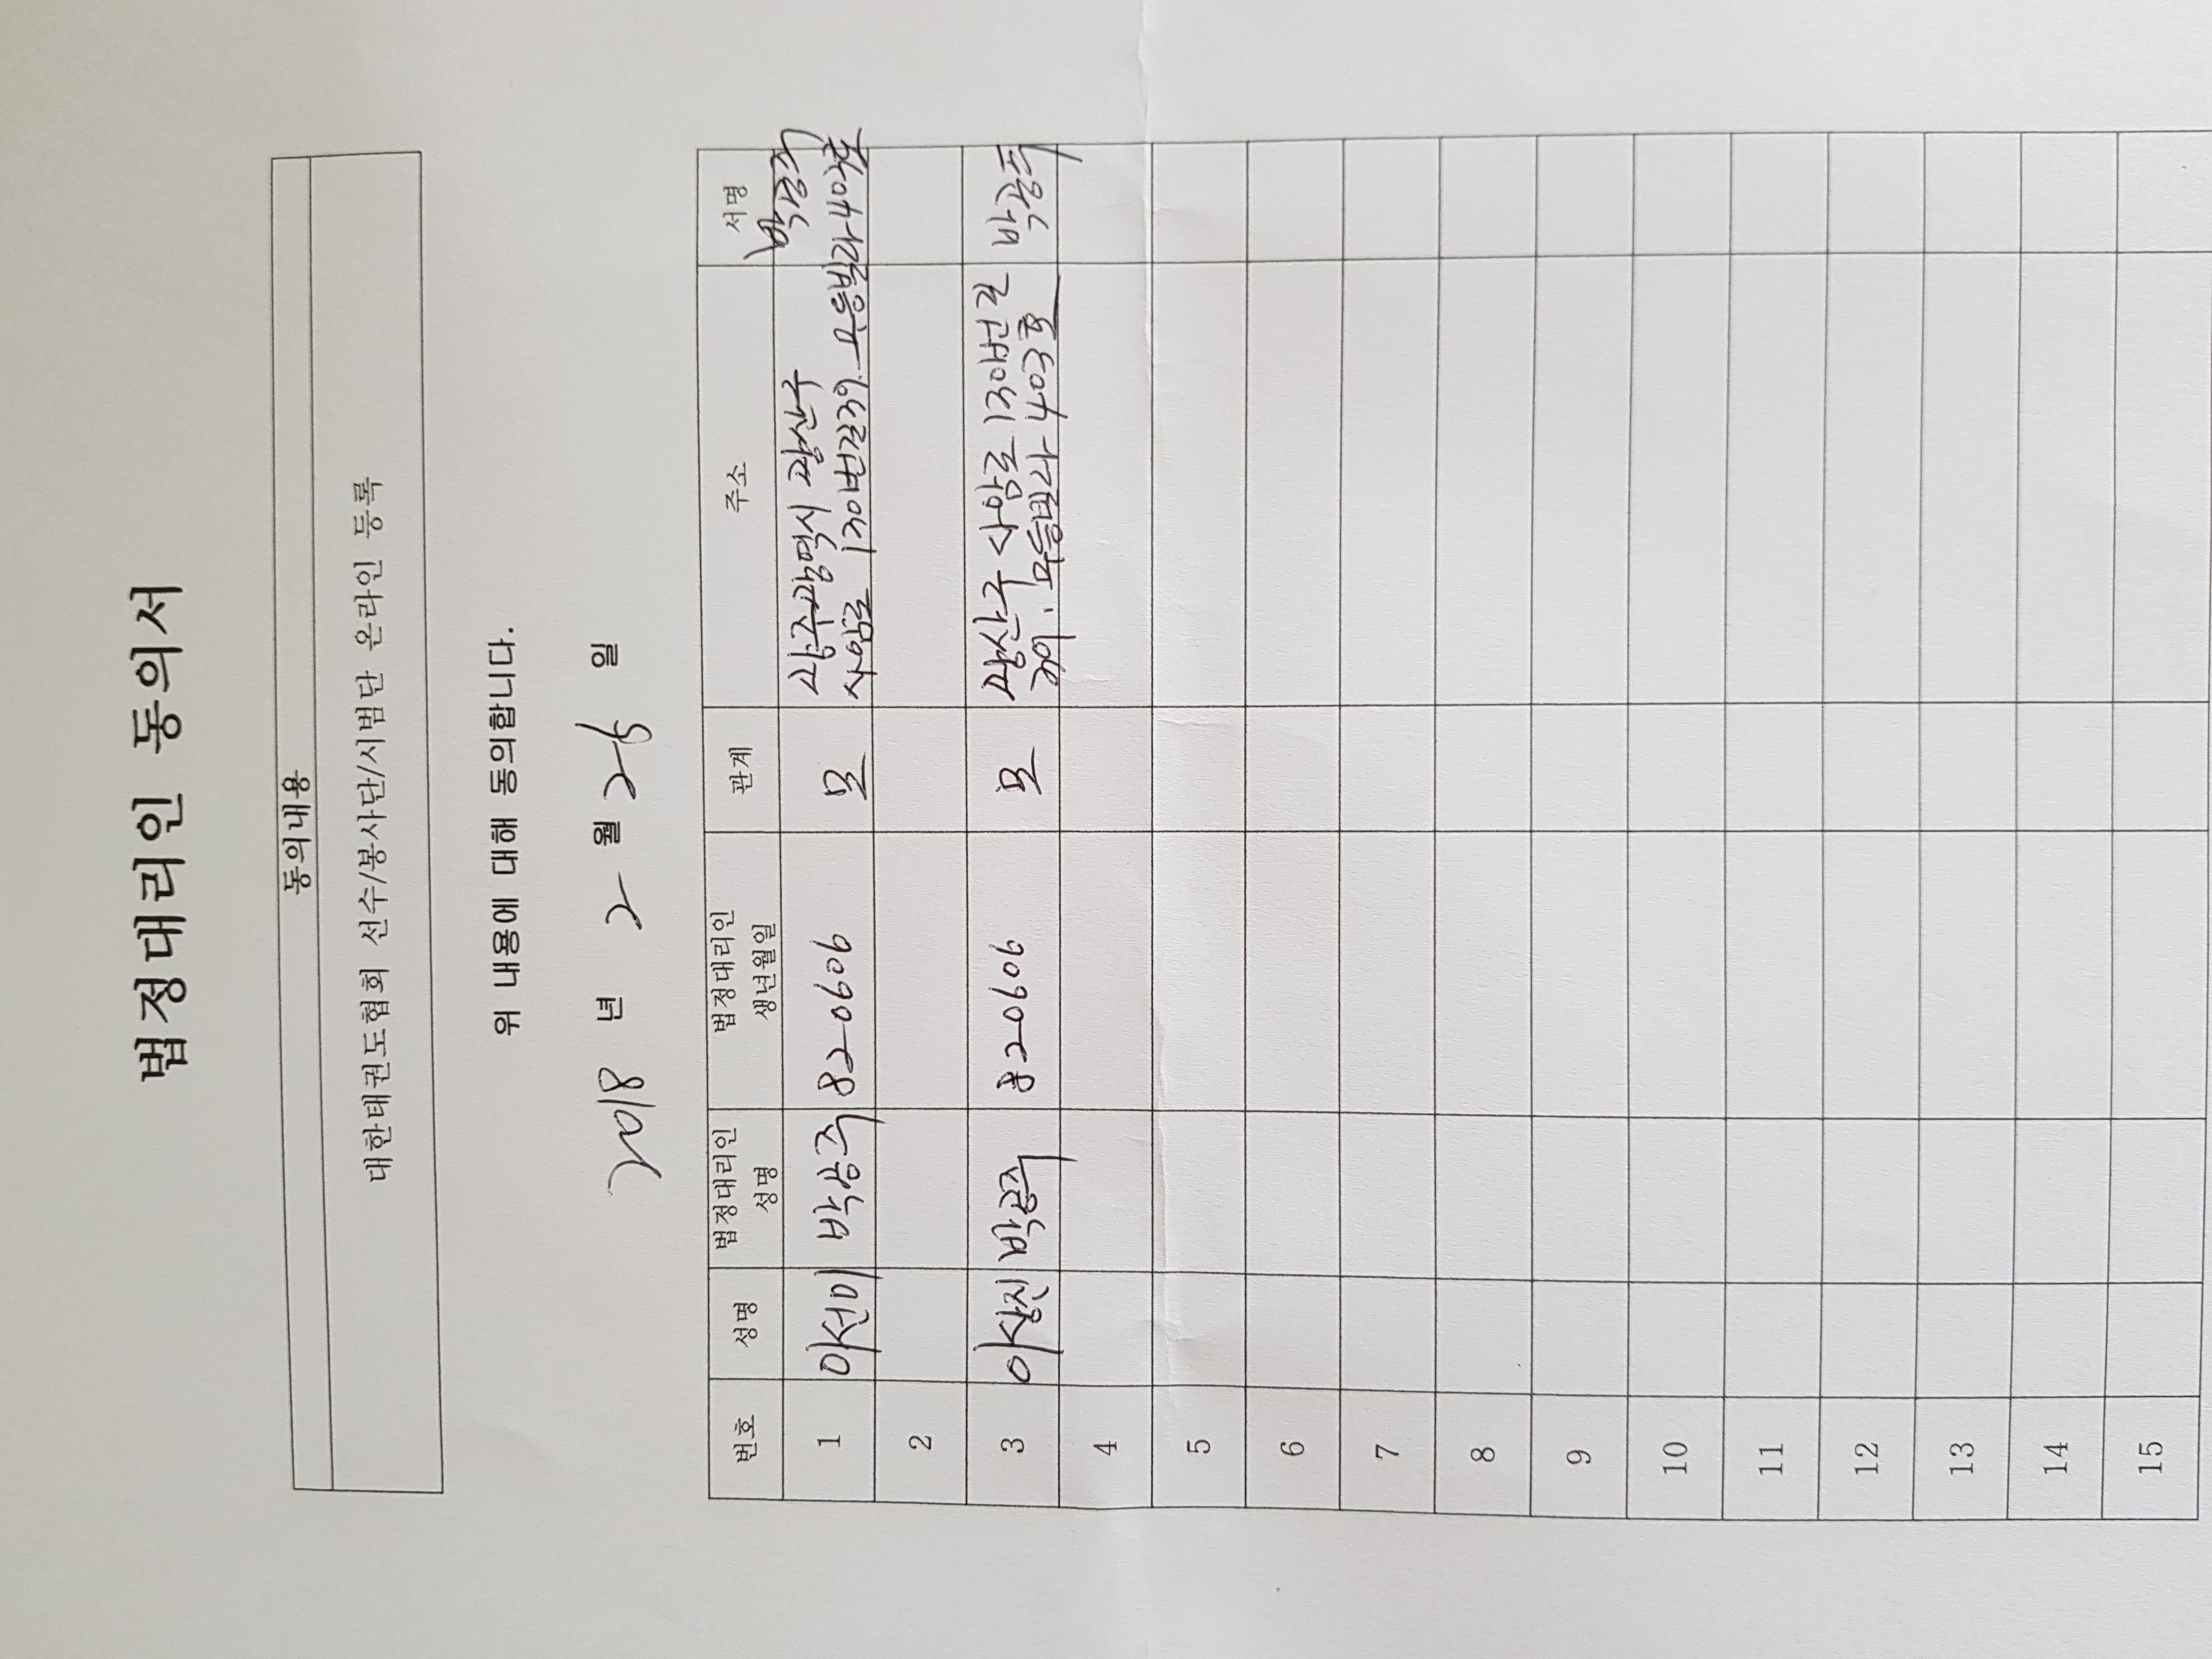 법정대리인 동의서
동의내용
대한태권도협회 선수/봉사단/시범단 온라인 등록
위 내용에 대해 동의합니다.
2018 년 2 월 25 일
번호 성명 법정대리인 성명 법정대리인 생년월일 관계 주소 서명
1 이선미 박상주 820606 모 광주광역시 광산구
사암로 130번길39. 무등빌라 403호
2
3 이상진 820606 모 광산구 사암로 130번길
39. 무등빌라 403호
4
5
6
7
8
9
10
11
12
13
14
15